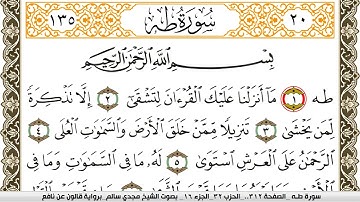 ٢٠ سُورَةُ طه ١٣٥
بِسْمِ اللَّهِ الرَّحْمَٰنِ الرَّحِيمِ
طه ١ مَا أَنزَلْنَا عَلَيْكَ الْقُرْءَانَ لِتَشْقَىٰ ٢ إِلَّا تَذْكِرَةً
لِّمَن يَخْشَىٰ ٣ تَنزِيلًا مِّمَّنْ خَلَقَ الْأَرْضَ وَالسَّمَٰوَٰتِ الْعُلَى ٤
الرَّحْمَٰنُ عَلَى الْعَرْشِ اسْتَوَىٰ ٥ لَهُ مَا فِي السَّمَٰوَٰتِ وَمَا فِي
سورة طـه _ الصفحة ٣١٢.. الحزب ٣٢_ الجزء ١٦_ بصوت الشيخ مجدي سالم_ برواية قالون عن نافع